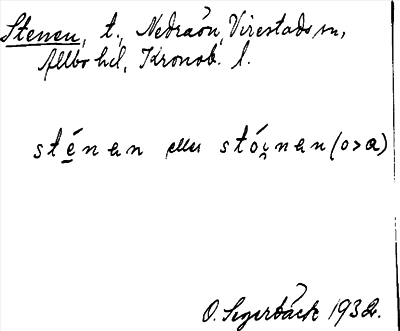 Stenen, t., Nedraön, Virestads sn,
Allbo hd, Kronob. l.
sténan eller stói̯nan (o>a)
O. Segerbäck 1932.